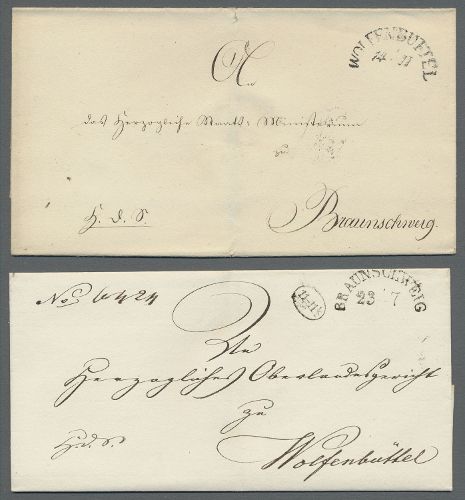 WOLFENBÜTTEL
14 11
An
das Herzogliche Staats-Ministerium
zu
Braunschweig.
H. d. S.
BRAUNSCHWEIG
23 7
No. 6424
An
Herzogliches Oberlandesgericht
zu
Wolfenbüttel
H. d. S.